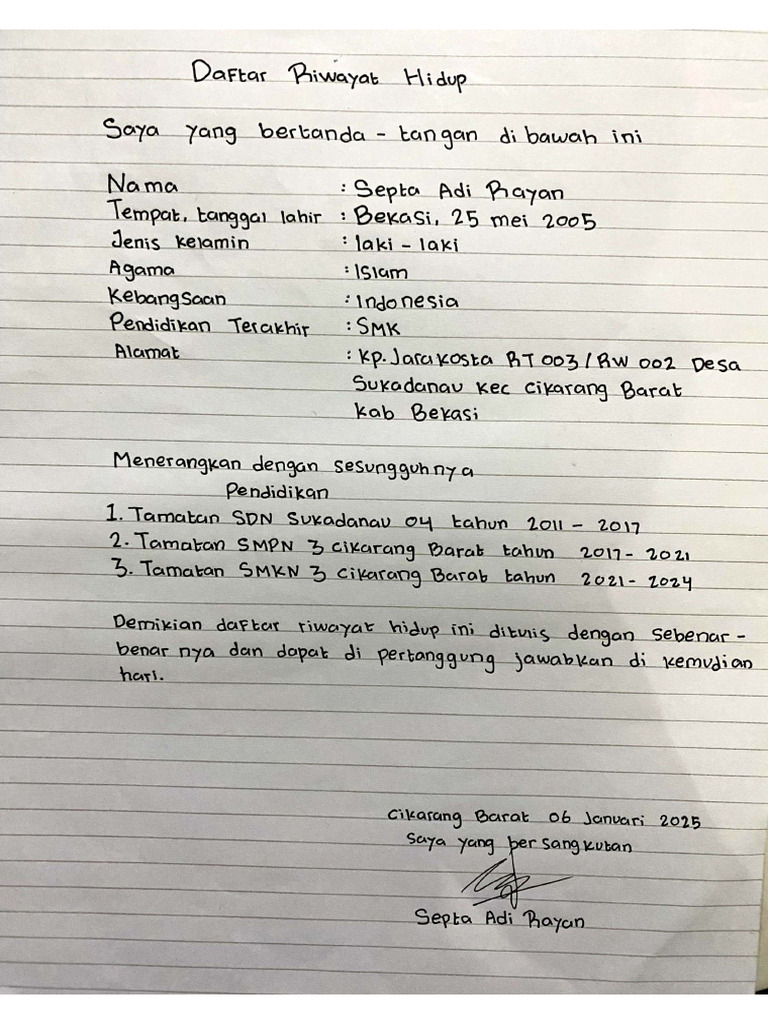 Daftar Riwayat Hidup
Saya yang bertanda - tangan di bawah ini
Nama : Septa Adi Rayan
Tempat, tanggal lahir : Bekasi, 25 mei 2005
Jenis kelamin : laki - laki
Agama : Islam
Kebangsaan : Indonesia
Pendidikan Terakhir : SMK
Alamat : Kp. Jarakosta RT 003 / RW 002 Desa
Sukadanau kec Cikarang Barat
kab Bekasi
Menerangkan dengan sesungguhnya
Pendidikan
1. Tamatan SDN Sukadanau 04 tahun 2011 - 2017
2. Tamatan SMPN 3 cikarang Barat tahun 2017 - 2021
3. Tamatan SMKN 3 Cikarang Barat tahun 2021 - 2024
Demikian daftar riwayat hidup ini ditulis dengan sebenar -
benar nya dan dapat di pertanggung jawabkan di kemudian
hari.
Cikarang Barat 06 Januari 2025
Saya yang ber sangkutan
Septa Adi Rayan